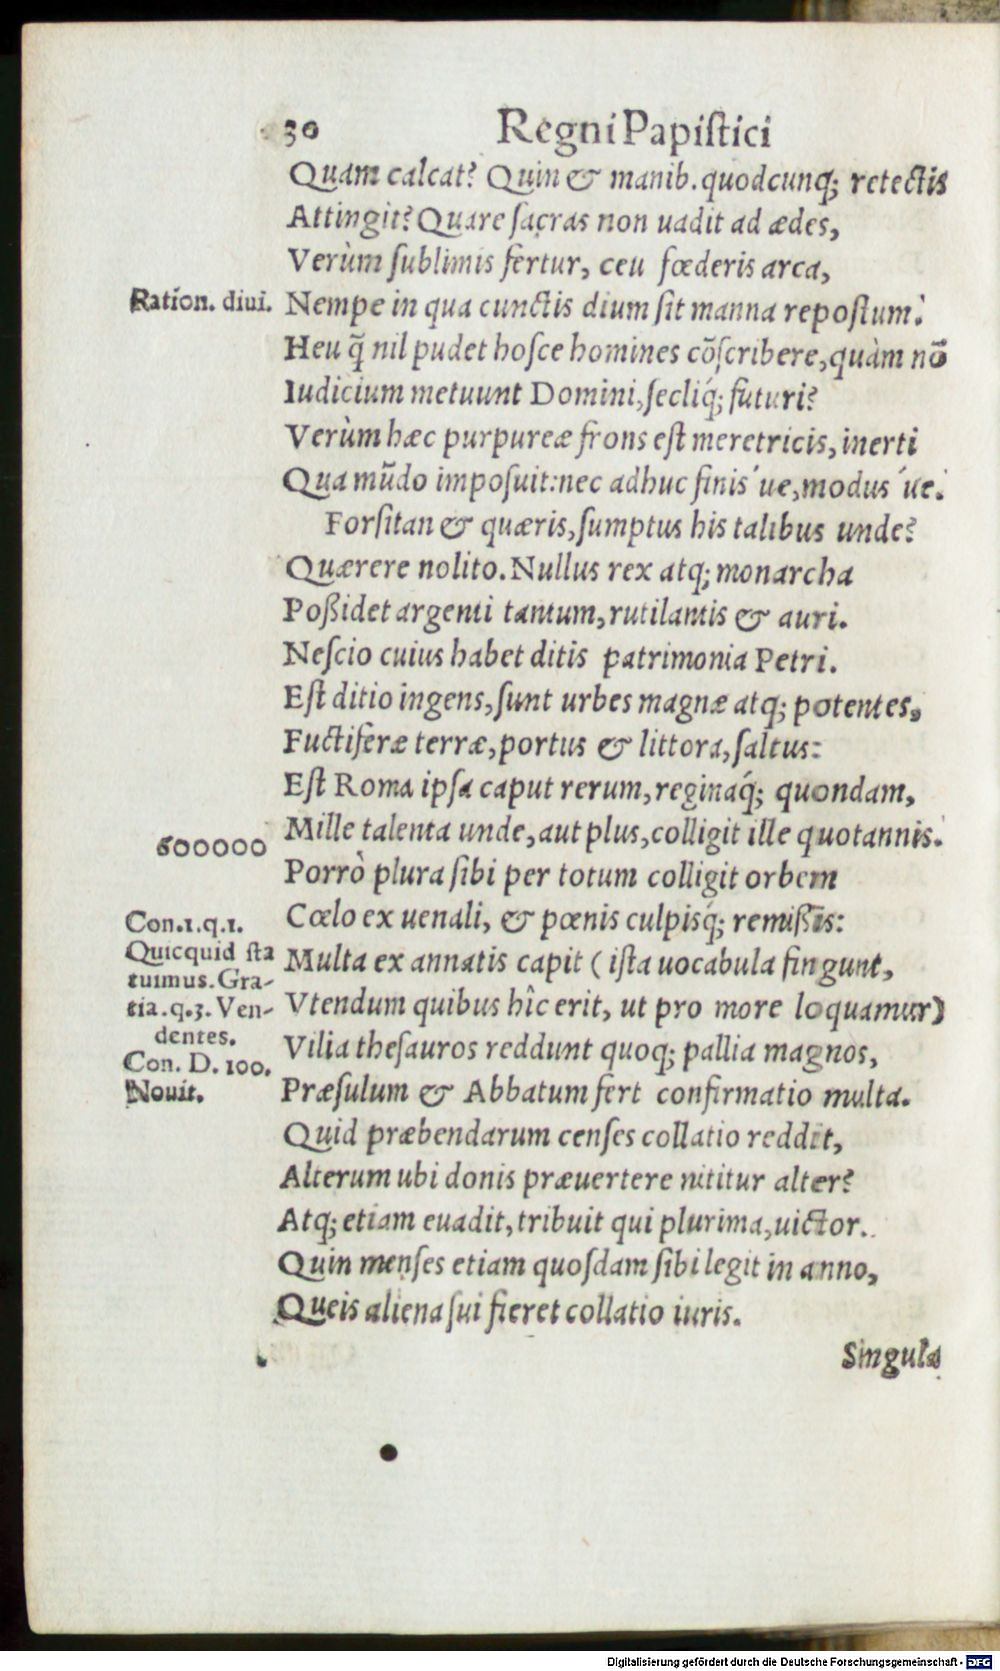 30 Regni Papiſtici
Quam calcat? Quin & manib. quodcunq; retectis
Attingit? Quare ſacras non uadit ad ædes,
Verùm ſublimis fertur, ceu fœderis arca,
Ration. diui. Nempe in qua cunctis dium ſit manna repoſtum?
Heu q̃ nil pudet hoſce homines cõſcribere, quàm nõ
Iudicium metuunt Domini, ſecliq́; futuri?
Verùm hæc purpureæ frons eſt meretricis, inerti
Qua mũdo impoſuit: nec adhuc finis ´ue, modus ´ue?
Forſitan & quæris, ſumptus his talibus unde?
Quærere nolito. Nullus rex atq; monarcha
Poßidet argenti tantum, rutilantis & auri.
Neſcio cuius habet ditis patrimonia Petri.
Eſt ditio ingens, ſunt urbes magnæ atq; potentes,
Fuctiferæ terræ, portus & littora, ſaltus:
Eſt Roma ipſa caput rerum, reginaq́; quondam,
Mille talenta unde, aut plus, colligit ille quotannis?
600000
Porrò plura ſibi per totum colligit orbem
Cœlo ex uenali, & pœnis culpisq́; remißis:
Multa ex annatis capit (iſta uocabula fingunt,
Vtendum quibus hîc erit, ut pro more loquamur)
Vilia theſauros reddunt quoq; pallia magnos,
Præſulum & Abbatum fert confirmatio multa.
Con.1.q.1.
Quicquid ſta
tuimus. Gra-
tia.q.3. Ven-
dentes.
Con. D. 100.
Nouit.
Quid præbendarum cenſes collatio reddit,
Alterum ubi donis præuertere nititur alter?
Atq; etiam euadit, tribuit qui plurima, uictor.
Quin menſes etiam quoſdam ſibi legit in anno,
Queis aliena ſui fieret collatio iuris.
Singula
Digitalisierung gefördert durch die Deutsche Forschungsgemeinschaft - DFG